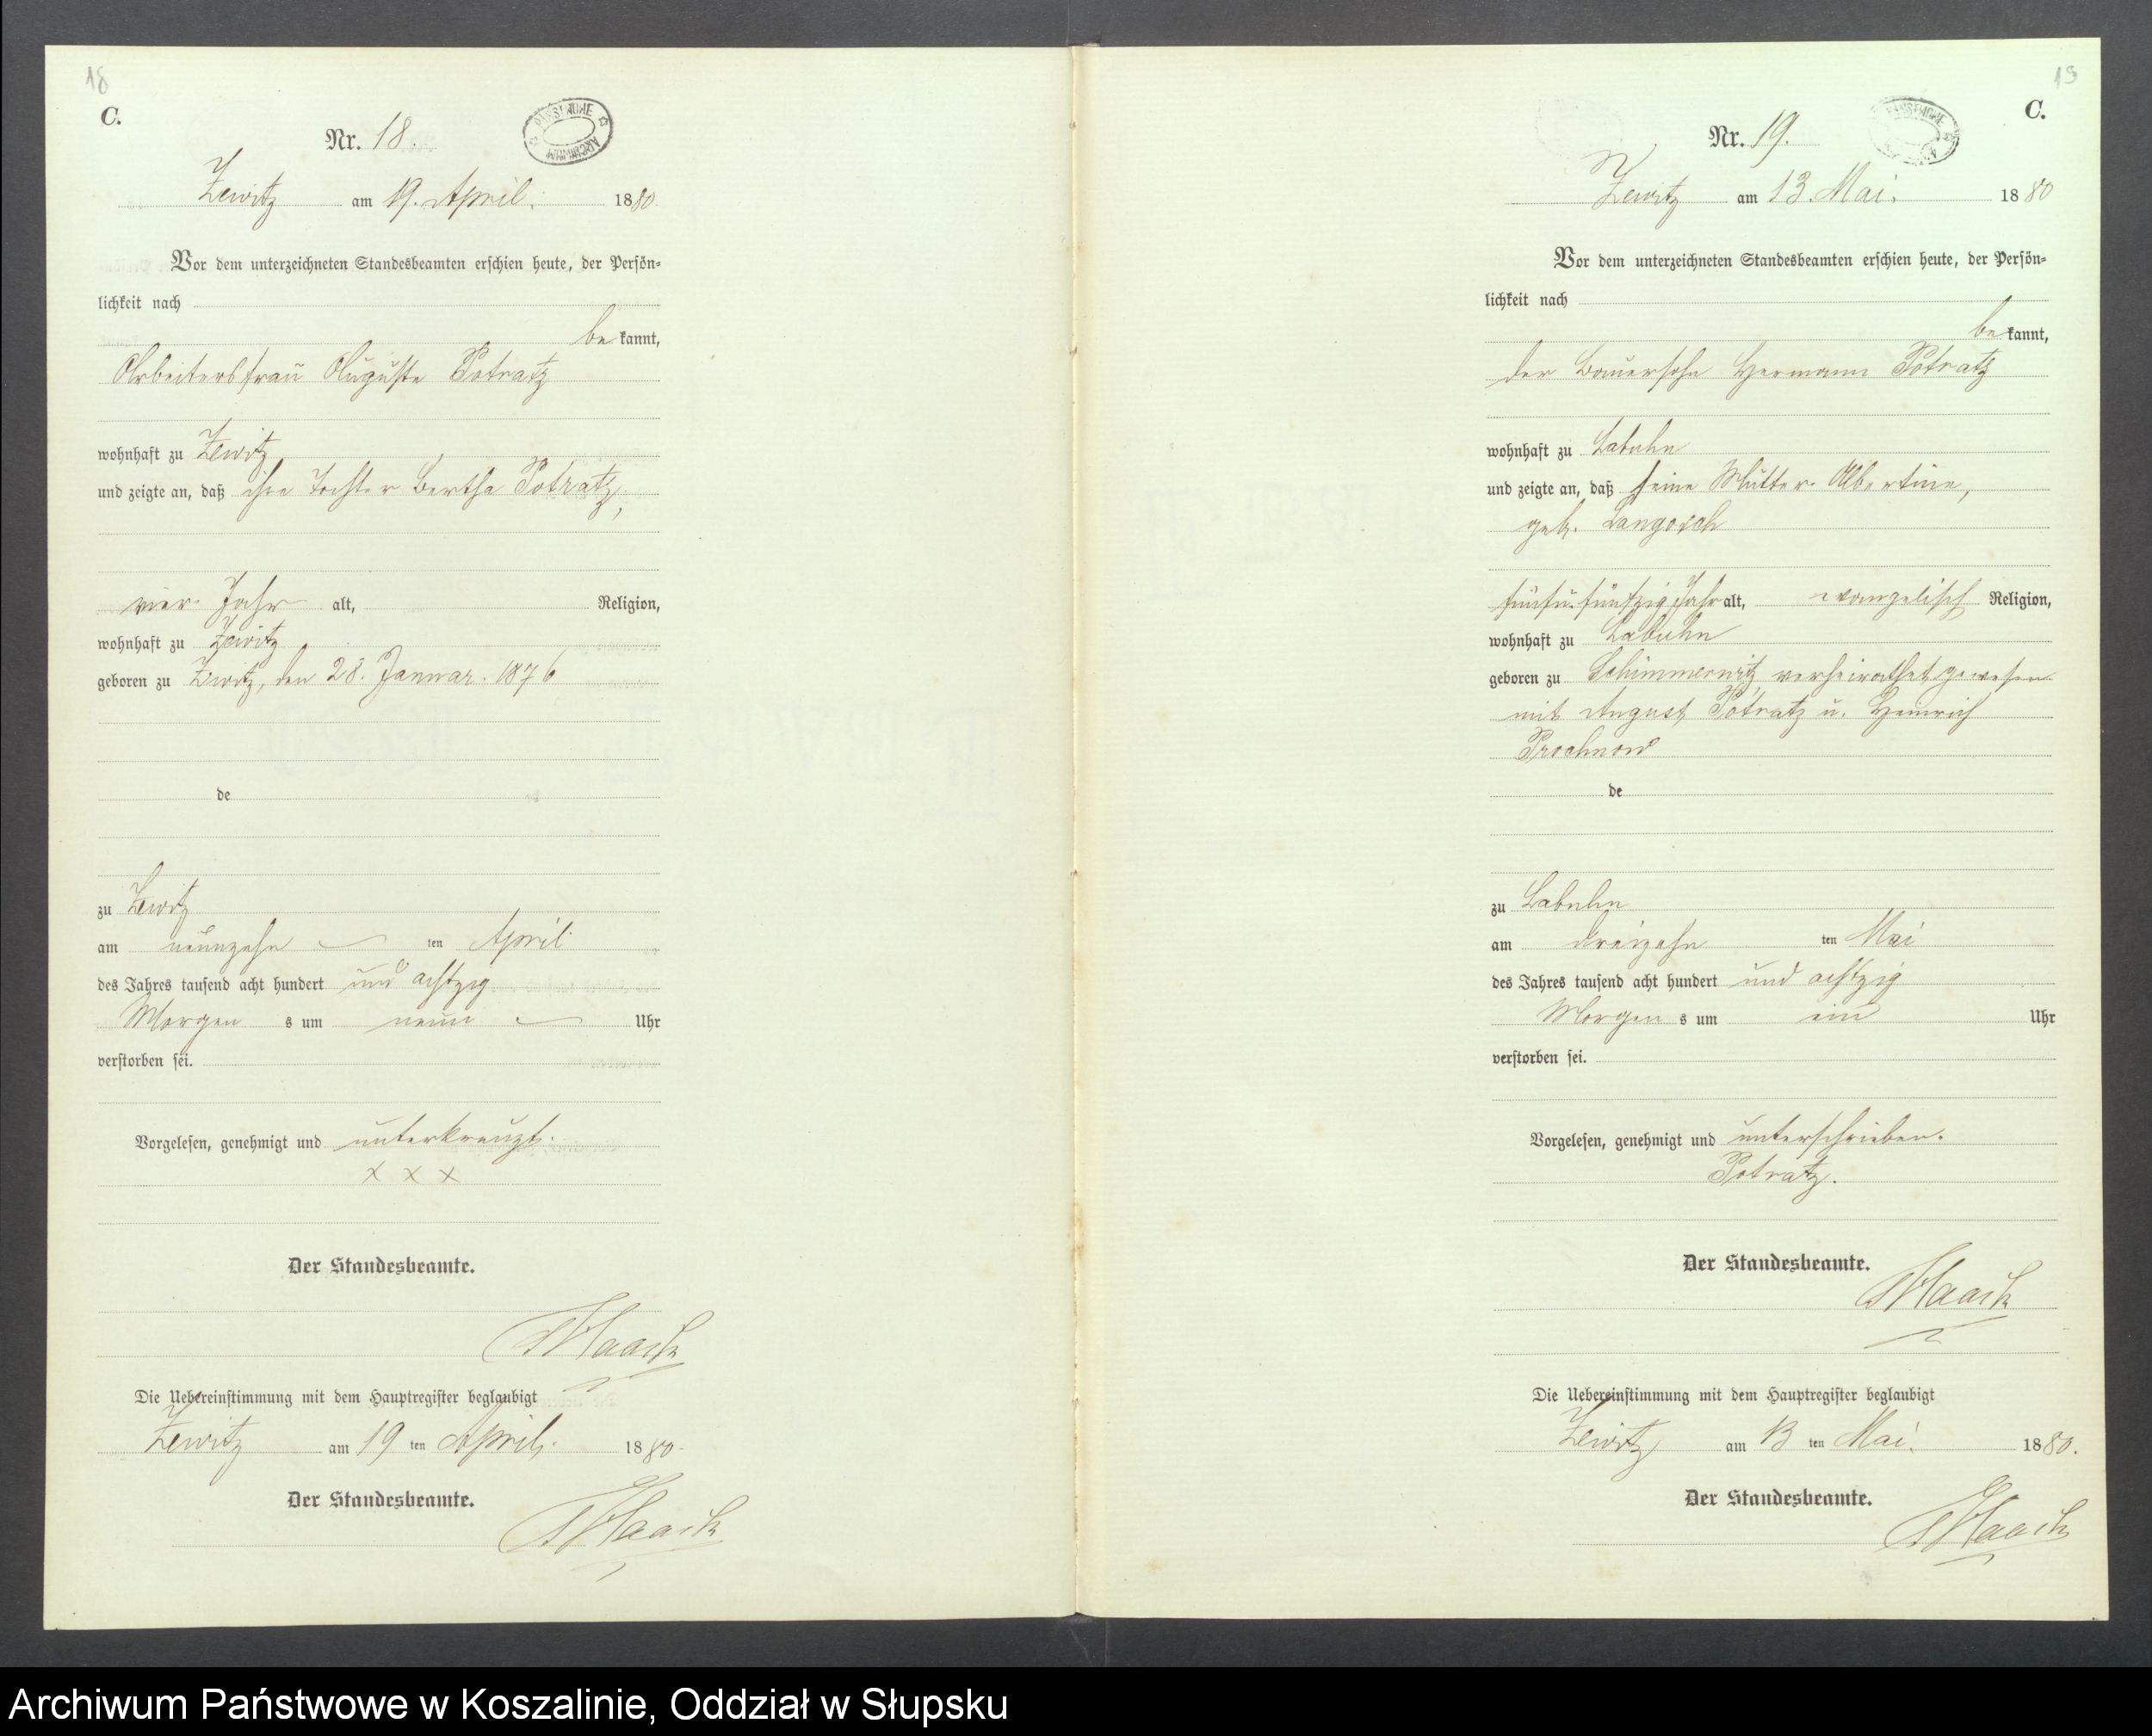 18
C.
Nr. 18.
ARCHIWUM PAŃSTWOWE
Zewitz am 19. April. 1880
Vor dem unterzeichneten Standesbeamten erschien heute, der Persön-
lichkeit nach
be kannt,
Arbeitersfrau Auguste Potratz
wohnhaft zu Zewitz
und zeigte an, daß ihre Tochter Bertha Potratz,
vier Jahr alt, Religion,
wohnhaft zu Zewitz
geboren zu Zewitz, den 28. Januar. 1876
de
zu Zewitz
am neunzehn ten April
des Jahres tausend acht hundert und achtzig
Morgen s um neun Uhr
verstorben sei.
Vorgelesen, genehmigt und unterkreuzt.
x x x
Der Standesbeamte.
Maack
Die Uebereinstimmung mit dem Hauptregister beglaubigt
Zewitz am 19 ten April. 1880.
Der Standesbeamte.
Maack
19
C.
Nr. 19.
Zewitz am 13. Mai. 1880
Vor dem unterzeichneten Standesbeamten erschien heute, der Persön-
lichkeit nach
be kannt,
der Bauersohn Hermann Potratz
wohnhaft zu Labuhn
und zeigte an, daß seine Mutter Albertine,
geb. Langosch
fünfu.fünfzig Jahr alt, evangelisch Religion,
wohnhaft zu Labuhn
geboren zu Schimmerwitz, verheirathet gewesen
mit August Potratz u. Heinrich
Prochnow
de
zu Labuhn
am dreizehn ten Mai
des Jahres tausend acht hundert und achtzig
Morgen s um ein Uhr
verstorben sei.
Vorgelesen, genehmigt und unterschrieben.
Potratz.
Der Standesbeamte.
Maack
Die Uebereinstimmung mit dem Hauptregister beglaubigt
Zewitz am 13 ten Mai. 1880.
Der Standesbeamte.
Maack
Archiwum Państwowe w Koszalinie, Oddział w Słupsku